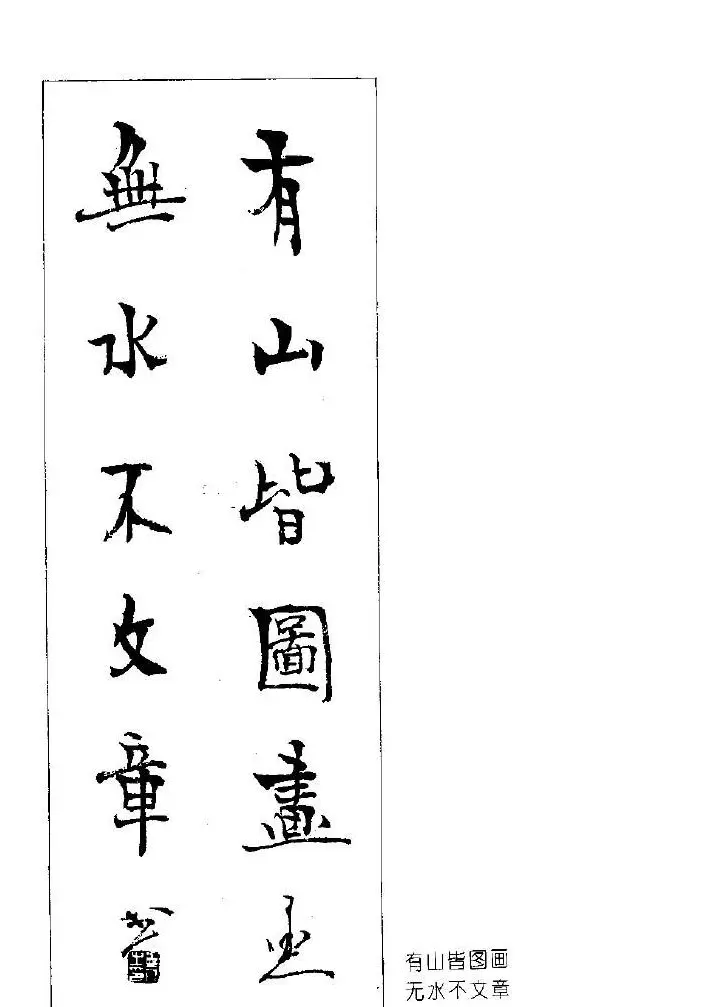 有山皆圖畫
無水不文章
有山皆图画
无水不文章